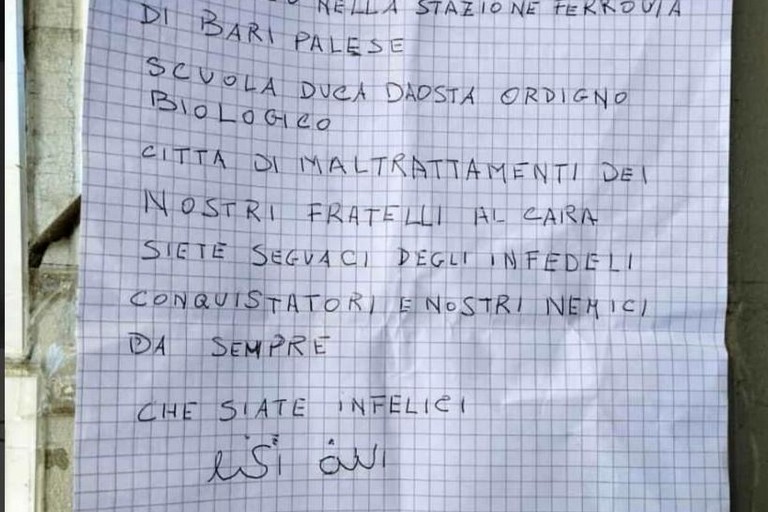 NELLA STAZIONE FERROVIA
DI BARI PALESE
SCUOLA DUCA DAOSTA ORDIGNO
BIOLOGICO
CITTA DI MALTRATTAMENTI DEI
NOSTRI FRATELLI AL CARA
SIETE SEGUACI DEGLI INFEDELI
CONQUISTATORI E NOSTRI NEMICI
DA SEMPRE
CHE SIATE INFELICI